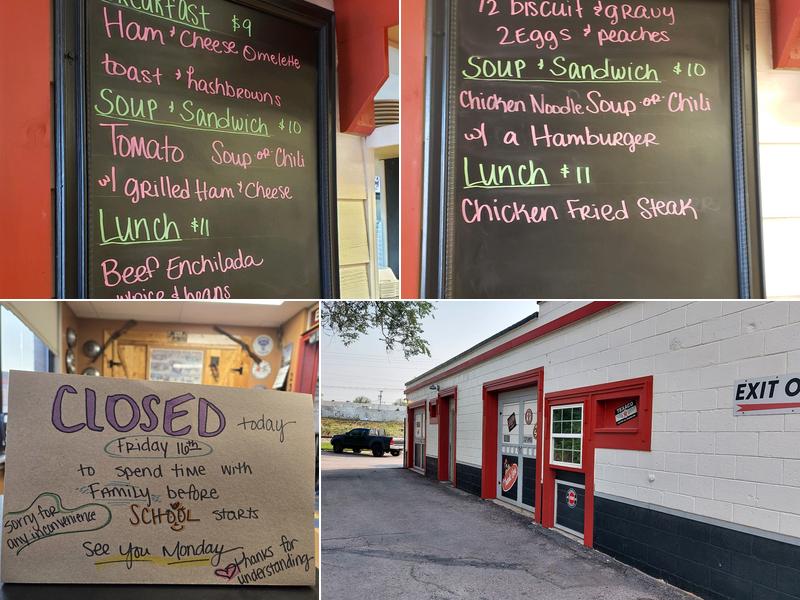 Breakfast $9
Ham & Cheese Omelette
toast & hashbrowns
Soup & Sandwich $10
Tomato Soup or Chili
w/ grilled Ham & Cheese
Lunch $11
Beef Enchilada
w/rice & beans
1/2 biscuit & gravy
2 Eggs & peaches
Soup & Sandwich $10
Chicken Noodle Soup or Chili
w/ a Hamburger
Lunch $11
Chicken Fried Steak
CLOSED today
Friday 16th
to spend time with
Family before
SCHOOL starts
sorry for
any inconvenience
See You Monday
Thanks for
understanding
EXIT O
TEXACO